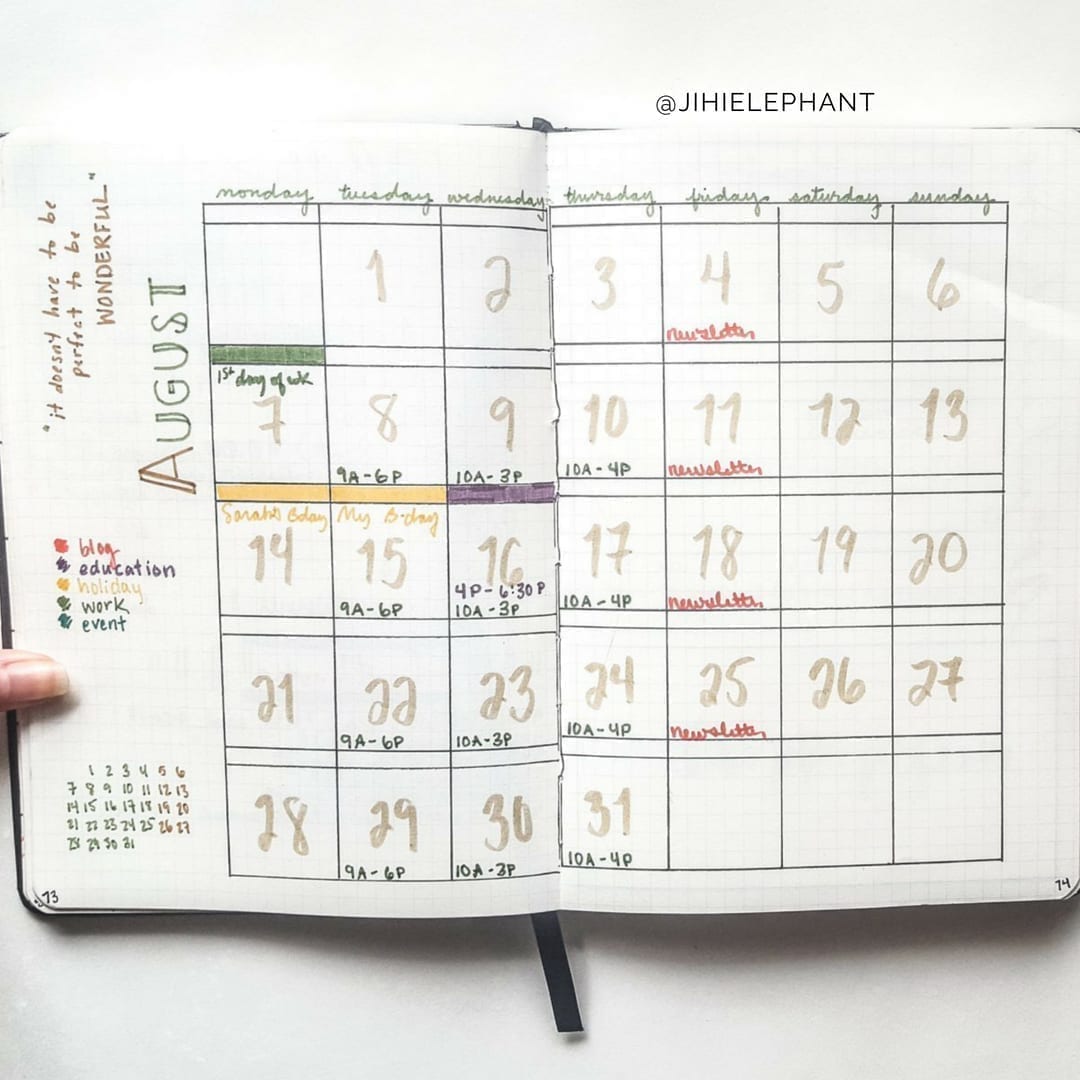 @JIHIELEPHANT
"it doesn't have to be
perfect to be
WONDERFUL"
AUGUST
monday tuesday wednesday thursday friday saturday sunday
1 2 3 4 5 6
newsletter
1st day of wk
7 8 9 10 11 12 13
9A-6P 10A-3P 10A-4P newsletter
Sarah's Bday My B-day
14 15 16 17 18 19 20
4P-6:30P
9A-6P 10A-3P 10A-4P newsletter
21 22 23 24 25 26 27
9A-6P 10A-3P 10A-4P newsletter
28 29 30 31
9A-6P 10A-3P 10A-4P
blog
education
holiday
work
event
1 2 3 4 5 6
7 8 9 10 11 12 13
14 15 16 17 18 19 20
21 22 23 24 25 26 27
28 29 30 31
73
74